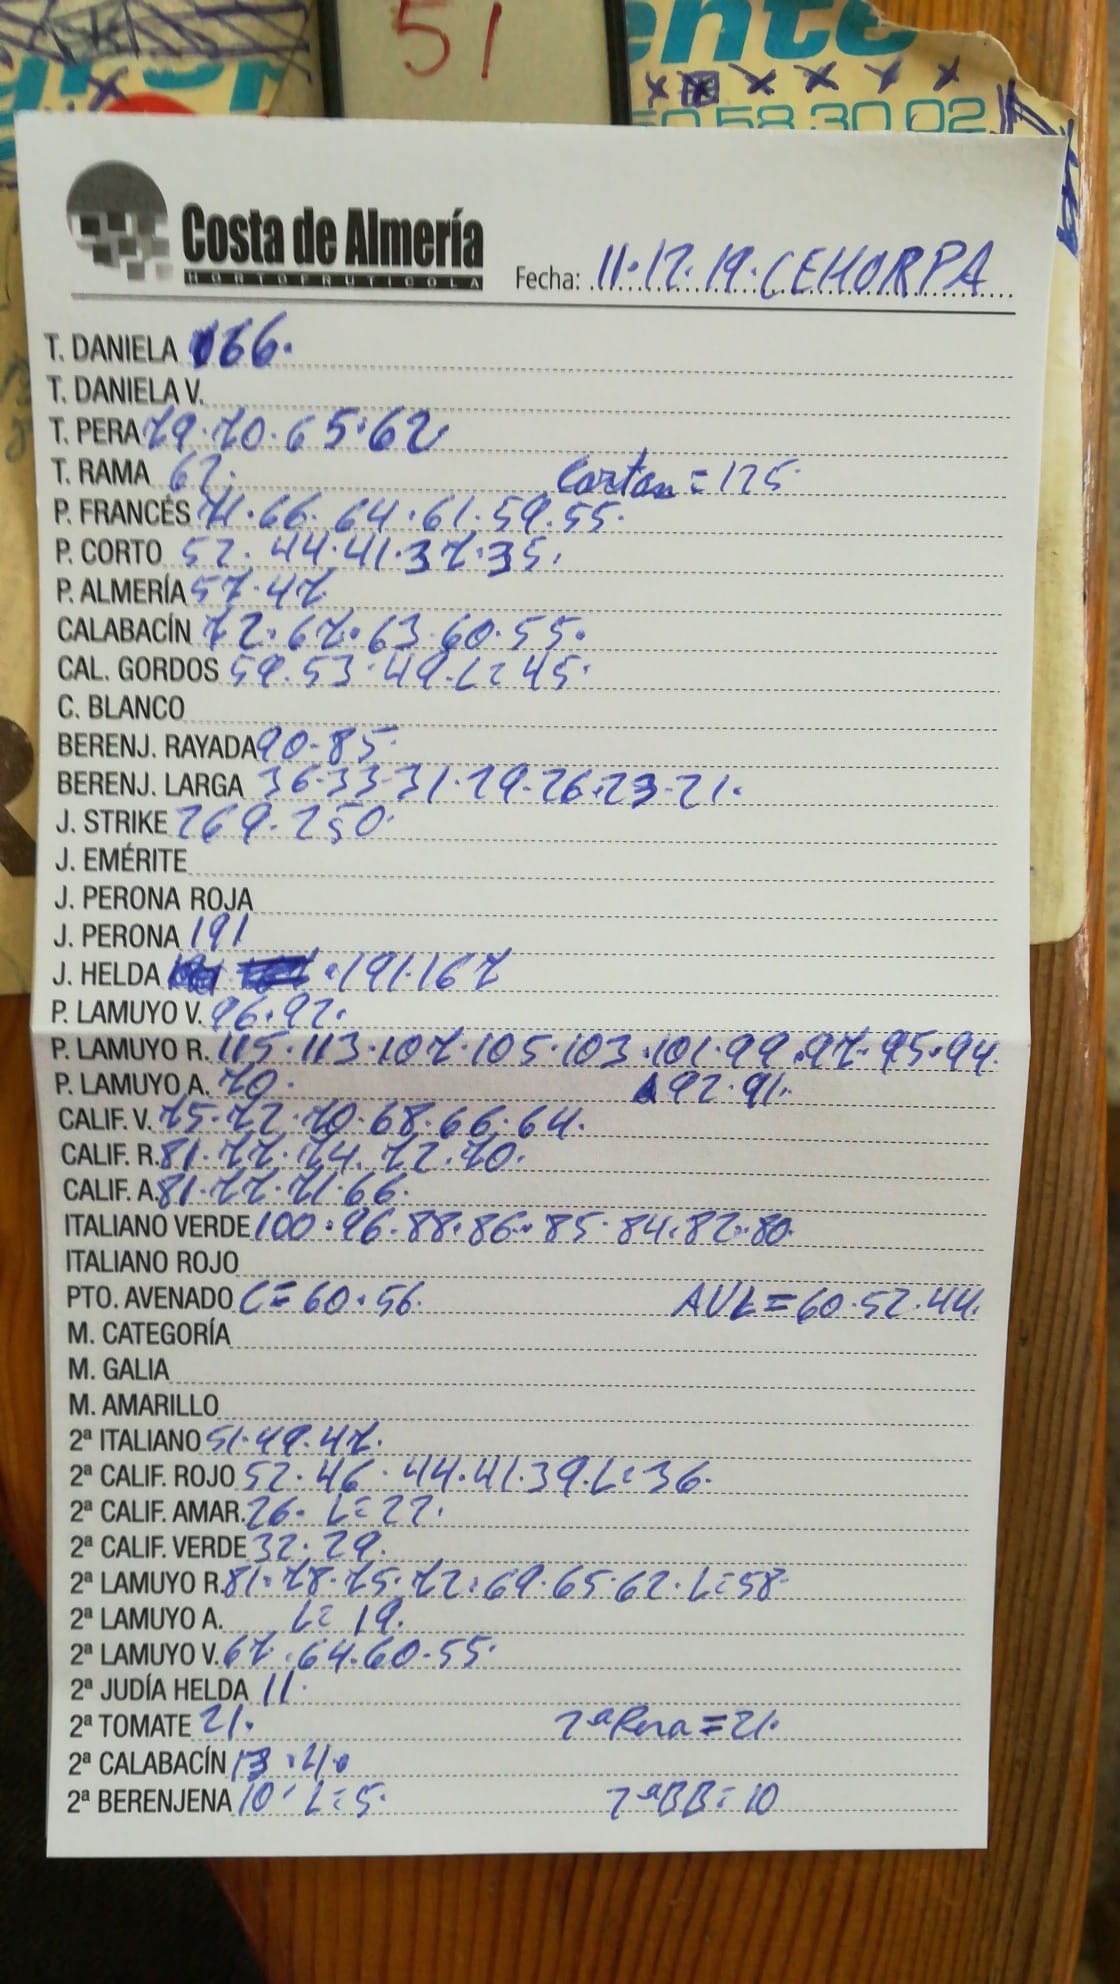 51
ente
50.58.30.02
Costa de Almería
HORTOFRUTICOLA
Fecha: 11.12.19. CEHORPA
T. DANIELA 66.
T. DANIELA V.
T. PERA 79.70.65.62.
T. RAMA 62. Carton = 125.
P. FRANCÉS 71.66.64.61.59.55.
P. CORTO 52.44.41.37.35.
P. ALMERÍA 57.47.
CALABACÍN 72.67.63.60.55.
CAL. GORDOS 59.53.49.L=45.
C. BLANCO
BERENJ. RAYADA 90.85.
BERENJ. LARGA 36.33.31.29.26.23.21.
J. STRIKE 269.250.
J. EMÉRITE
J. PERONA ROJA
J. PERONA 191
J. HELDA .191.167
P. LAMUYO V. 96.92.
P. LAMUYO R. 115.113.107.105.103.101.99.97.95.94.
P. LAMUYO A. 70. 92.91.
CALIF. V. 75.72.70.68.66.64.
CALIF. R. 81.77.74.72.70.
CALIF. A. 81.77.71.66.
ITALIANO VERDE 100.96.88.86.85.84.82.80.
ITALIANO ROJO
PTO. AVENADO C=60.56. AVL=60.52.44.
M. CATEGORÍA
M. GALIA
M. AMARILLO
2ª ITALIANO 51.49.47.
2ª CALIF. ROJO 52.46.44.41.39.L=36.
2ª CALIF. AMAR. 26. L=22.
2ª CALIF. VERDE 32.29.
2ª LAMUYO R. 81.78.75.72.69.65.62.L=58.
2ª LAMUYO A. L=19.
2ª LAMUYO V. 67.64.60.55.
2ª JUDÍA HELDA 11.
2ª TOMATE 21. 2ª Pera = 21.
2ª CALABACÍN 13.
2ª BERENJENA 10. L=5. 2ª BB=10